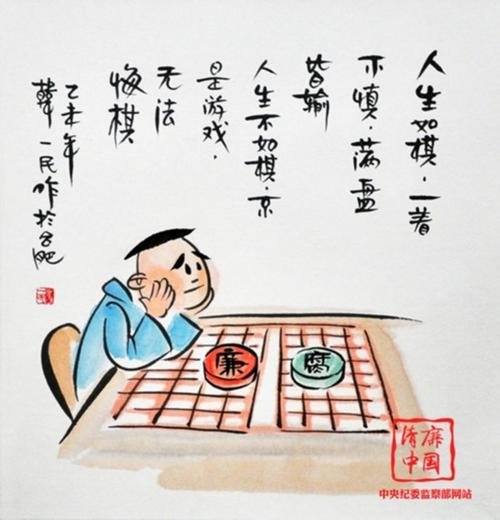 人生如棋，一着
不慎，满盘
皆输
人生不如棋，
是游戏，
无法
悔棋
乙未年
韓一民作於合肥
廉
腐
清廉
中国
中央纪委监察部网站